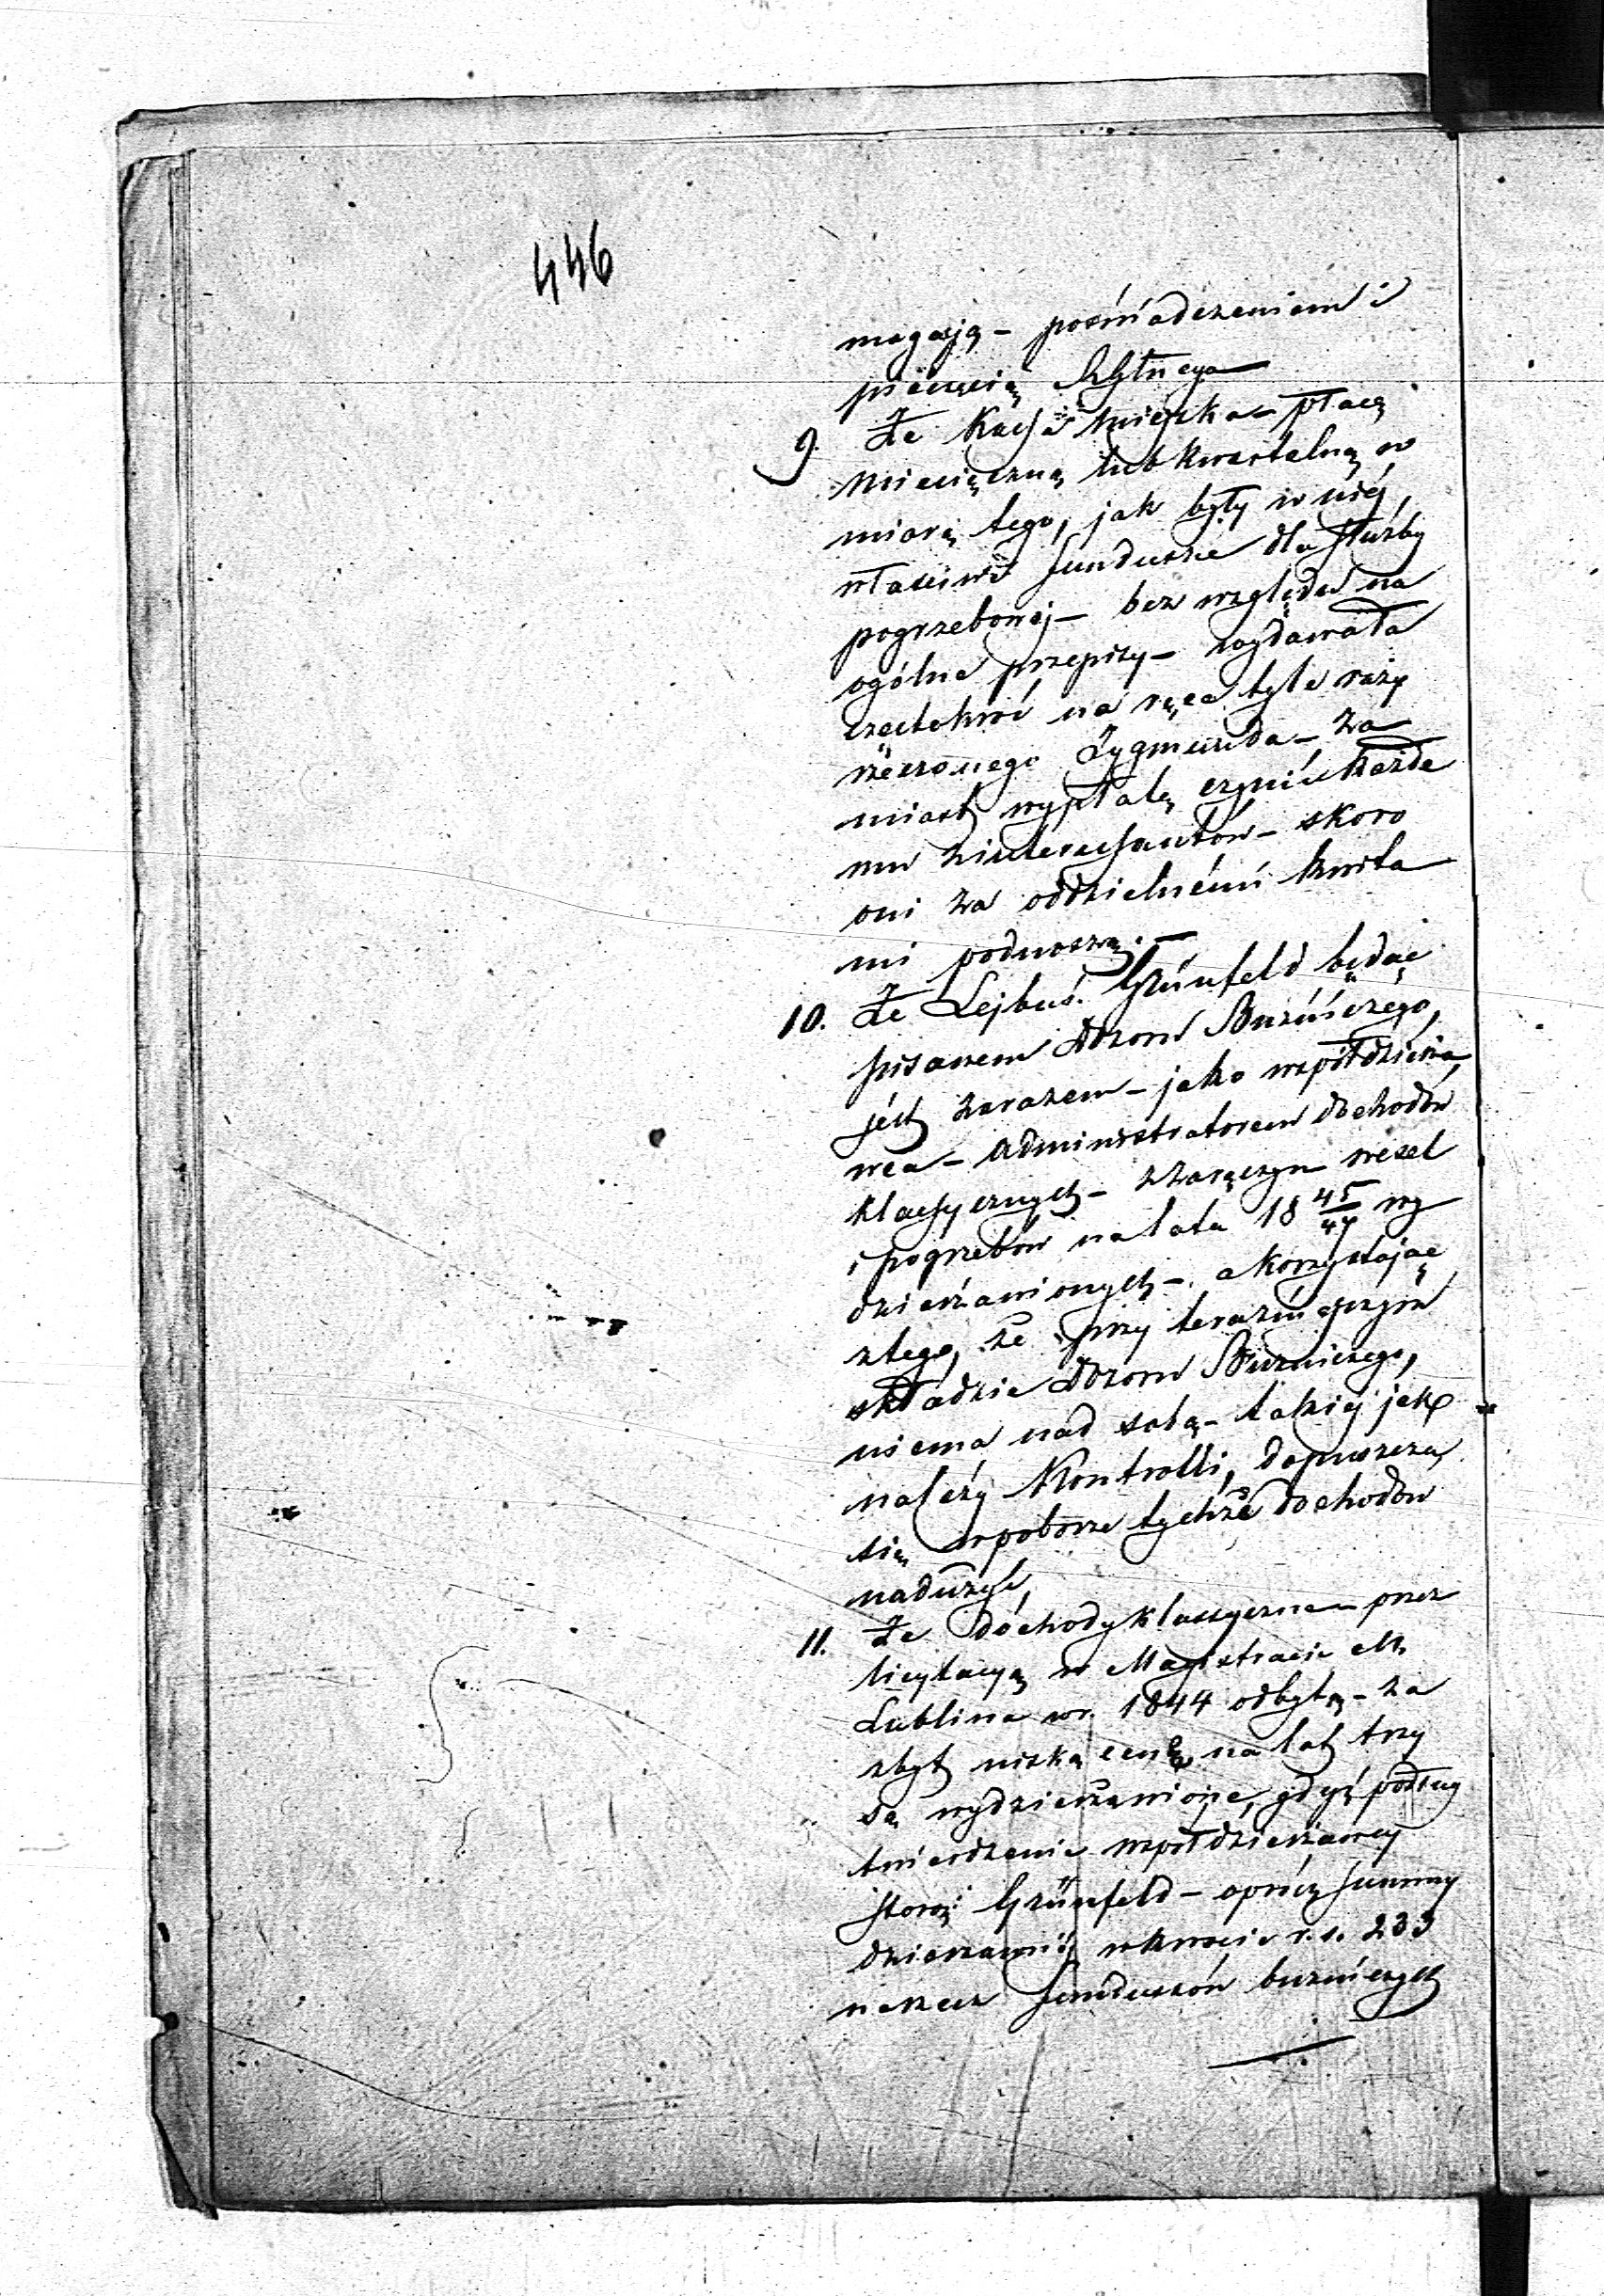 446
magają – poświadczeniem i
pieczęcią
9. Że Kassa Miejska – płacę
miesięczną lub kwartalną w
miarę tego, jak były w niéj
właściwe fundusze dla służby
pogrzebowéj – bez względu na
ogólne przepisy – wydawała
czętokroć na ręce tyle razy
rzeczonego Zygmunda – za
miast wypłatę czynić każde
mu z interessantów – skoro
oni za oddzielnémi kwita
mi podnoszą. –
10. Że Lejbuś Grünfeld będąc
pisarzem Dozoru Bużniczego,
jest zarazem – jako współdzierża
wca – administratorem dochodów
klassycznych – z zaręczyn wesel
i pogrzebów na lata 18 45/47 wy
dzierżawionych – a korzystając
z tego, że przy teraźniejszym
składzie Dozoru Bużniczego,
niema nad sobą – takiéj jak
należy Kontrolli, dopuszcza
się w poborze tychże dochodów
nadużyć,
11. Że dochody klassyczne – przez
licytacyą w Magistracie M.
Lublina w r. 1844 odbytą – za
zbyt niską cenę na lat trzy
są wydzierżawione, gdyż podług
twierdzenia współdzierżawcy
Grünfeld – oprócz summy
dzierżawnéj w kwocie r. s. 233
na rzecz funduszów bużniczych